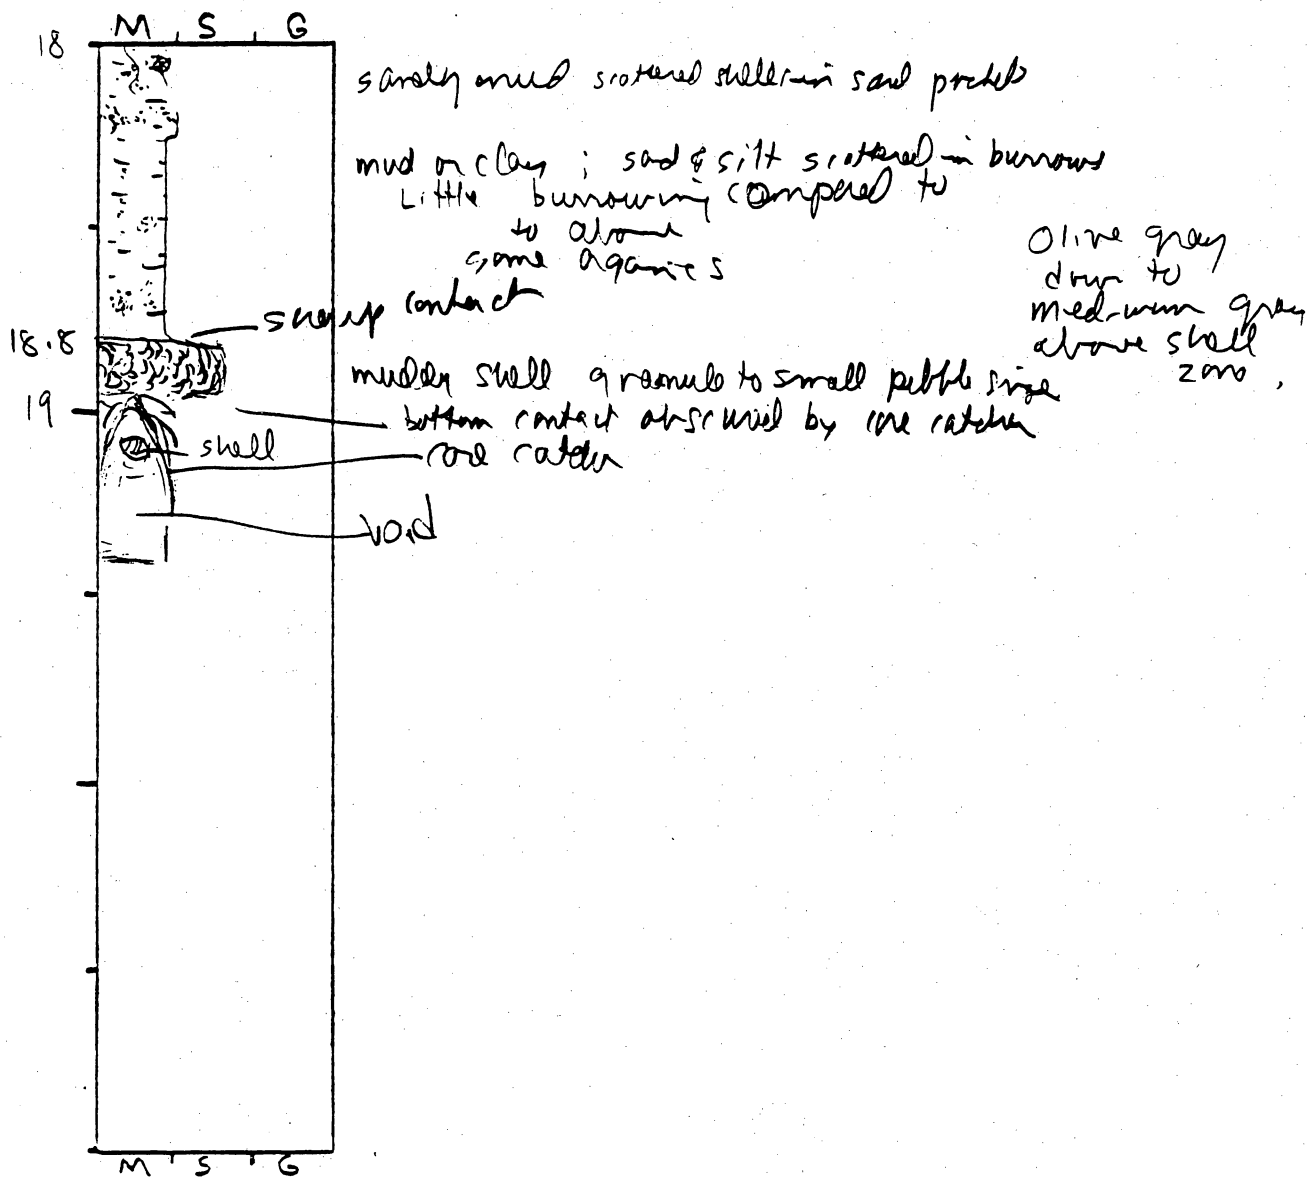 M S G
18
sandy mud scattered shells in sand pockets
mud or clay ; sand & silt scattered in burrows
Little burrowing compared to
to above
some organics
Olive gray
down to
medium gray
above shell
zone.
sharp contact
18.8
muddy shell granule to small pebble size
19
bottom contact obscured by core catcher
shell
core catcher
void
M S G